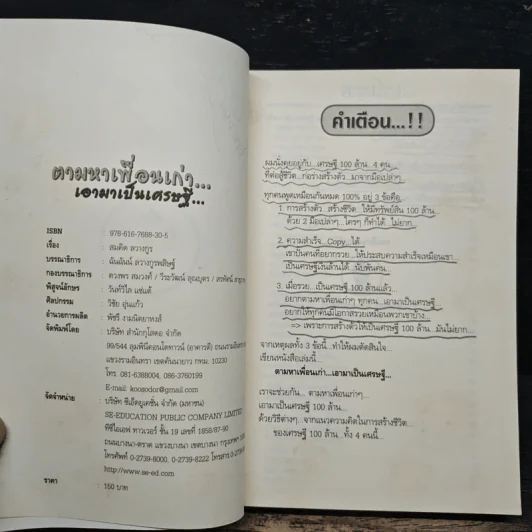 ตามหาเพื่อนเก่า...
เอามาเป็นเศรษฐี...
ISBN : 978-616-7688-30-5
เรื่อง : สมคิด ลวางกูร
บรรณาธิการ : ฉันฉันน์ ลวางกูรพสิษฐ์
กองบรรณาธิการ : ดวงพร สมวงศ์ / วีระวัฒน์
พิสูจน์อักษร : วันทิวิไล แซ่แต้
ศิลปกรรม : วิชัย อุ่นแก้ว
อำนวยการผลิต : พัชรี งามนิตยาหงส์
จัดพิมพ์โดย : บริษัท สำนักกูโสดอ จำกัด
99/544 ลุมพินีคอนโดทาวน์ (อาคารดี) ถนนรามอินทรา
แขวงรามอินทรา เขตคันนายาว กทม. 10230
โทร. 081-6388004, 086-3760199
E-mail: koosodor@gmail.com
จัดจำหน่าย : บริษัท ซีเอ็ดยูเคชั่น จำกัด (มหาชน)
SE-EDUCATION PUBLIC COMPANY LIMITED
ทีซีไอเอฟ ทาวเวอร์ ชั้น 19 เลขที่ 1858/87-90
ถนนบางนา-ตราด แขวงบางนา เขตบางนา กรุงเทพฯ
โทรศัพท์ 0-2739-8000, 0-2739-8222 โทรสาร
http://www.se-ed.com
ราคา : 150 บาท
คำเตือน...!!
ผมนั่งคุยอยู่กับ...เศรษฐี 100 ล้าน...4 คน...
ที่ต่อสู้ชีวิต...ก่อร่างสร้างตัว มาจากมือเปล่าๆ...
ทุกคนพูดเหมือนกันหมด 100% อยู่ 3 ข้อคือ...
1. การสร้างตัว สร้างชีวิต ให้มีทรัพย์สิน 100 ล้าน...
ด้วย 2 มือเปล่าๆ...ใครๆ ก็ทำได้ ไม่ยาก...
2. ความสำเร็จ...Copy...ได้
เขาปั้นคนที่อยากรวย...ให้ประสบความสำเร็จเหมือนเขา...
เป็นเศรษฐีเงินล้านได้...นับพันคน...
3. เมื่อรวย...เป็นเศรษฐี 100 ล้านแล้ว...
อยากตามหาเพื่อนเก่าๆ ทุกคน...เอามาเป็นเศรษฐี...
อยากให้ทุกคนมีโอกาสรวยเหมือนพวกเขาบ้าง...
=> เพราะการสร้างตัวให้เป็นเศรษฐี 100 ล้าน...มันไม่ยาก...
จากเหตุผลทั้ง 3 ข้อนี้...ทำให้ผมตัดสินใจ...
เขียนหนังสือเล่มนี้...
ตามหาเพื่อนเก่า...เอามาเป็นเศรษฐี...
เราจะช่วยกัน... ตามหาเพื่อนเก่าๆ...
เอามาเป็นเศรษฐี 100 ล้าน...
ด้วยวิธีต่างๆ...จากแนวความคิดในการสร้างชีวิต...
ของเศรษฐี 100 ล้าน...ทั้ง 4 คนนี้...